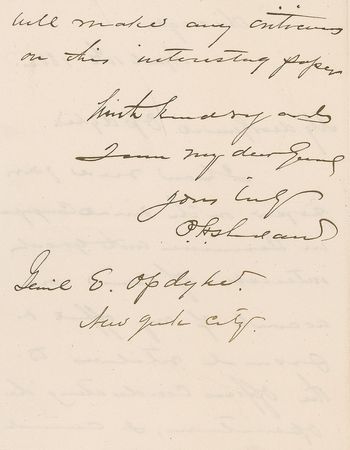 will make any criticisms
on this interesting paper
With kind regards
I am my dear Genl
yours truly
P. H. Sheridan
Genl E. Opdyke.
New York City.